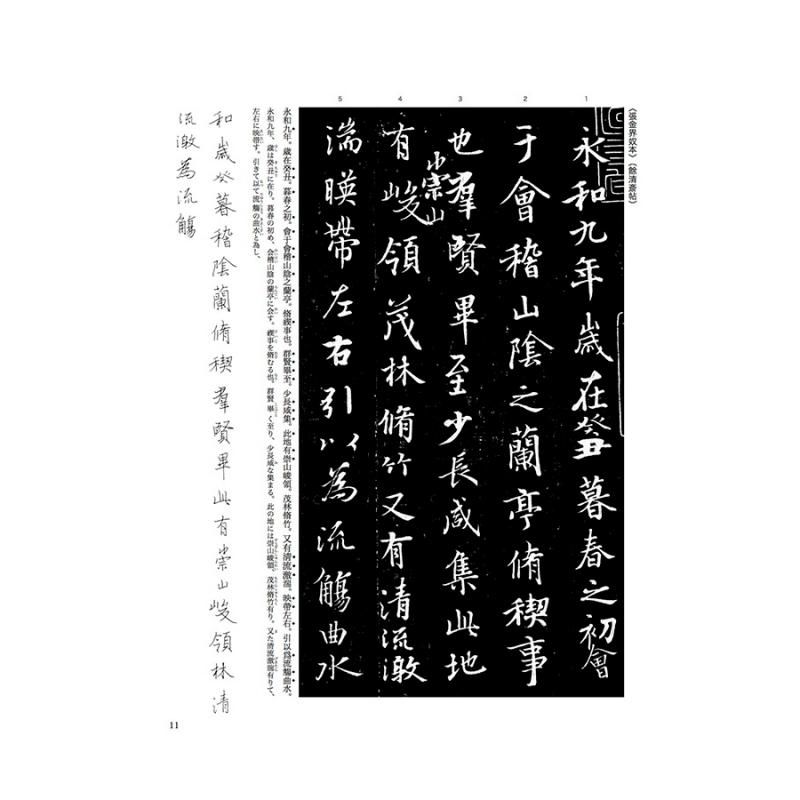 〈張金界奴本〉〈餘清斎帖〉
1
2
3
4
5
永和九年歳在癸丑暮春之初會
于會稽山陰之蘭亭脩稧事
也羣賢畢至少長咸集此地
有崇山峻領茂林脩竹又有清流激
湍暎帶左右引以為流觴曲水
永和九年。歳在癸丑。暮春之初。會于會稽山陰之蘭亭。脩禊事也。群賢畢至。少長咸集。此地有崇山峻領。茂林脩竹。又有清流激湍。映帶左右。引以爲流觴曲水。
永和九年、歳は癸丑に在り。暮春の初め、会稽山陰の蘭亭に会す。禊事を脩むる也。群賢畢く至り、少長咸な集まる。此の地には崇山峻領、茂林脩竹有り。又た清流激湍有りて、
左右に映帯す。引きて以て流觴の曲水と為し、
和歳癸暮稽陰蘭脩稧羣賢畢此有崇山峻領林清
流激為流觴
11